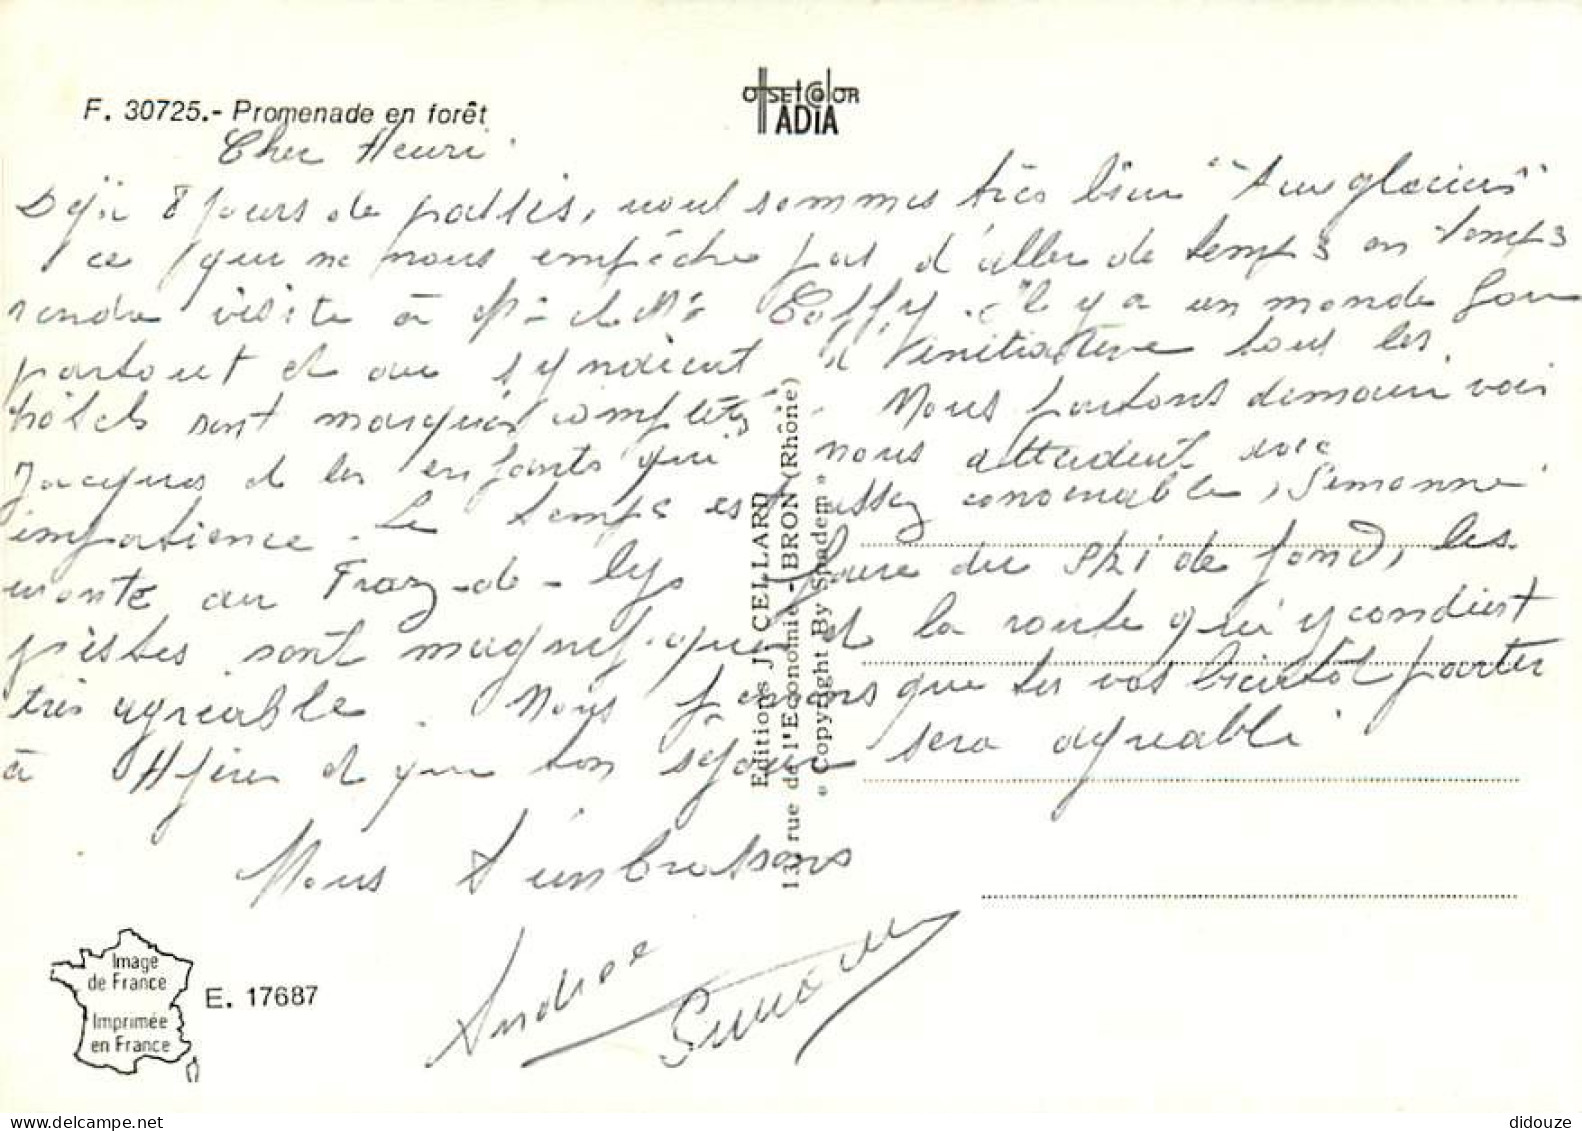 F. 30725.- Promenade en forêt
OffsetColor
ADIA
Cher Henri
Déjà 8 jours de passés, nous sommes très bien "Aux glaciers"
ce qui ne nous empêche pas d'aller de temps en temps
rendre visite à Mr et Me Coffy. il y a un monde fou
partout et au syndicat d'initiative tous les
hôtels sont marqués complets. Nous partons demain voir
Jacques et les enfants qui nous attendent avec
impatience. Le temps est assez convenable, Simonne
monte au Praz-de-lys faire du ski de fond, les
pistes sont magnifiques et la route qui y conduit
très agréable. Nous pensons que tu vas bientôt partir
à et que ton séjour sera agréable
Nous t'embrassons
Andrée
Simonne
Editions J. CELLARD
13, rue de l'Economie - BRON (Rhône)
"Copyright By Spadem"
Image
de France
Imprimée
en France
E. 17687
didouze